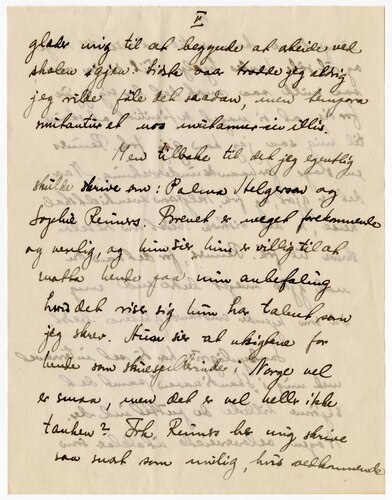 II
glæder mig til at begynde at arbeide ved
skolen igjen. Sidste vaar trodde jeg aldrig
jeg vilde føle det saadan, men tempora
mutantur et nos mutamur in illis.
Men tilbake til det jeg egentlig
skulde skrive om: Palma Helgeson og
Sophie Reimers. Brevet er meget forekommende
og venlig, og hun sier hun er villig til at
motta hende paa min anbefaling
hvis det viser sig hun har talent som
jeg skrev. Hun sier at utsigtene for
hende som skuespillerinde i Norge vel
er smaa, men det er vel heller ikke
tanken? Frk. Reimers ber mig skrive
saa snart som mulig, hvis vedkommende